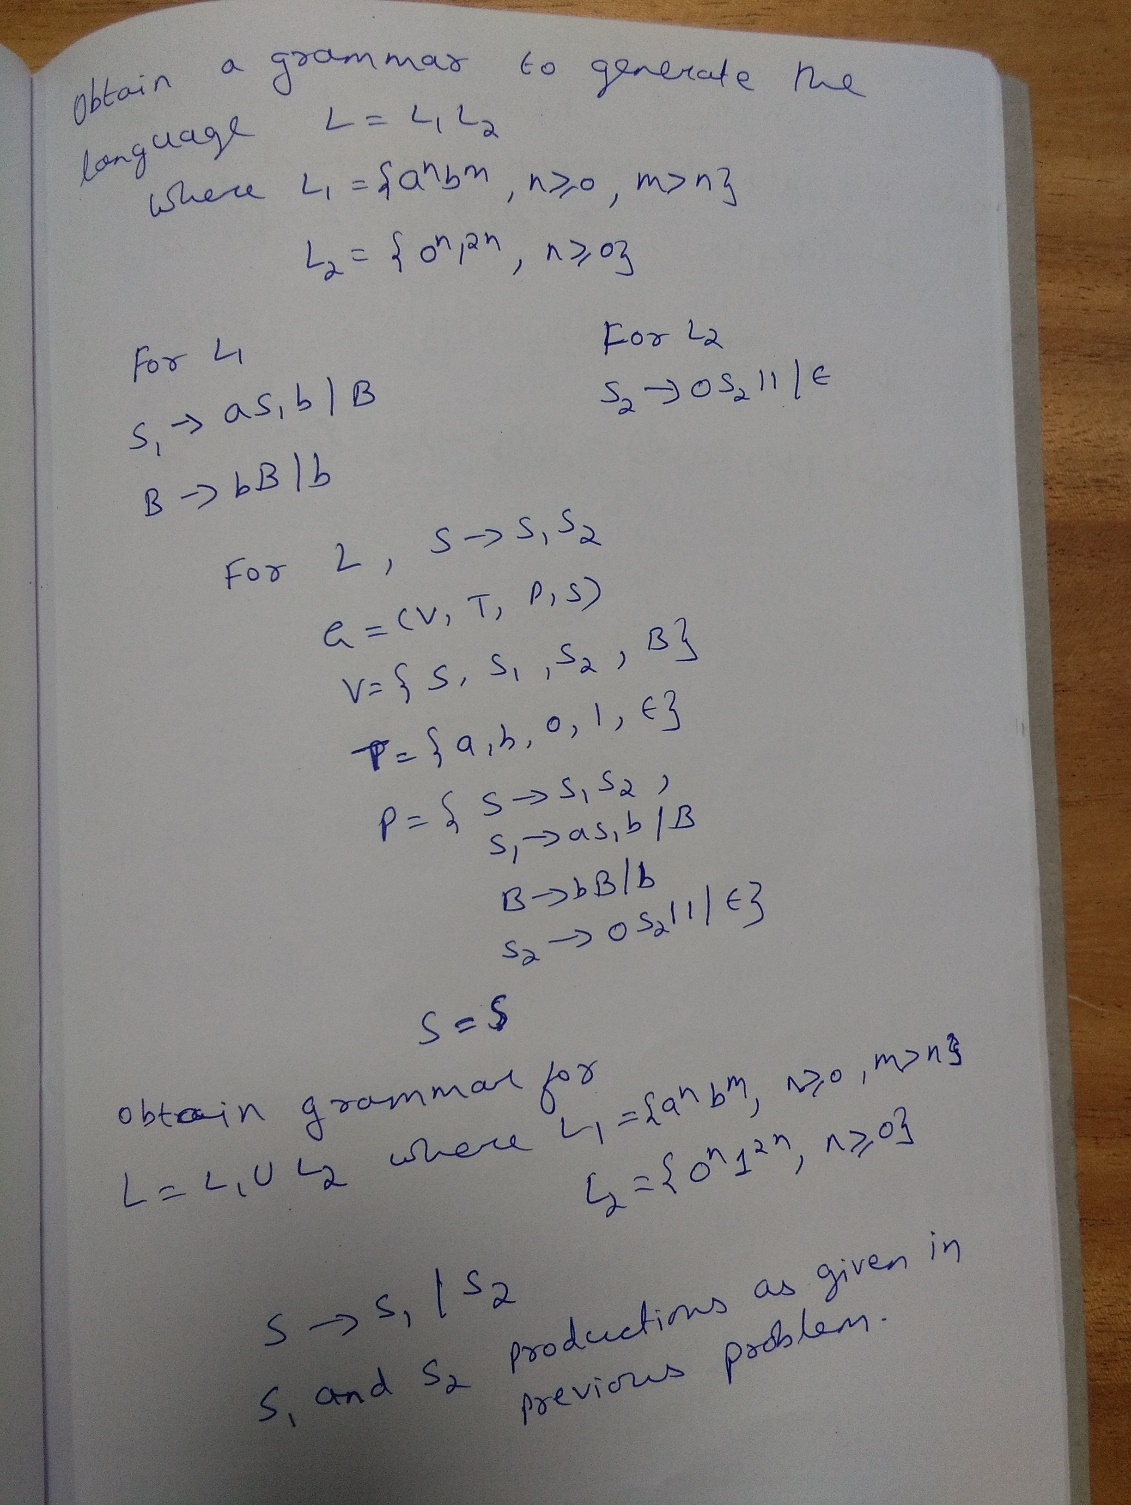 Obtain a grammar to generate the
language L = L₁L₂
where L₁ = {aⁿbᵐ, n≥0, m>n}
L₂ = {0ⁿ1²ⁿ, n≥0}
For L₁
S₁ → aS₁b | B
B → bB | b
For L₂
S₂ → 0S₂11 | ε
For L, S → S₁S₂
G = (V, T, P, S)
V = {S, S₁, S₂, B}
T = {a, b, 0, 1, ε}
P = { S → S₁S₂,
S₁ → aS₁b | B
B → bB | b
S₂ → 0S₂11 | ε}
S = S
Obtain grammar for
L = L₁ ∪ L₂ where L₁ = {aⁿbᵐ, n≥0, m>n}
L₂ = {0ⁿ1²ⁿ, n≥0}
S → S₁ | S₂
S₁ and S₂ productions as given in
previous problem.